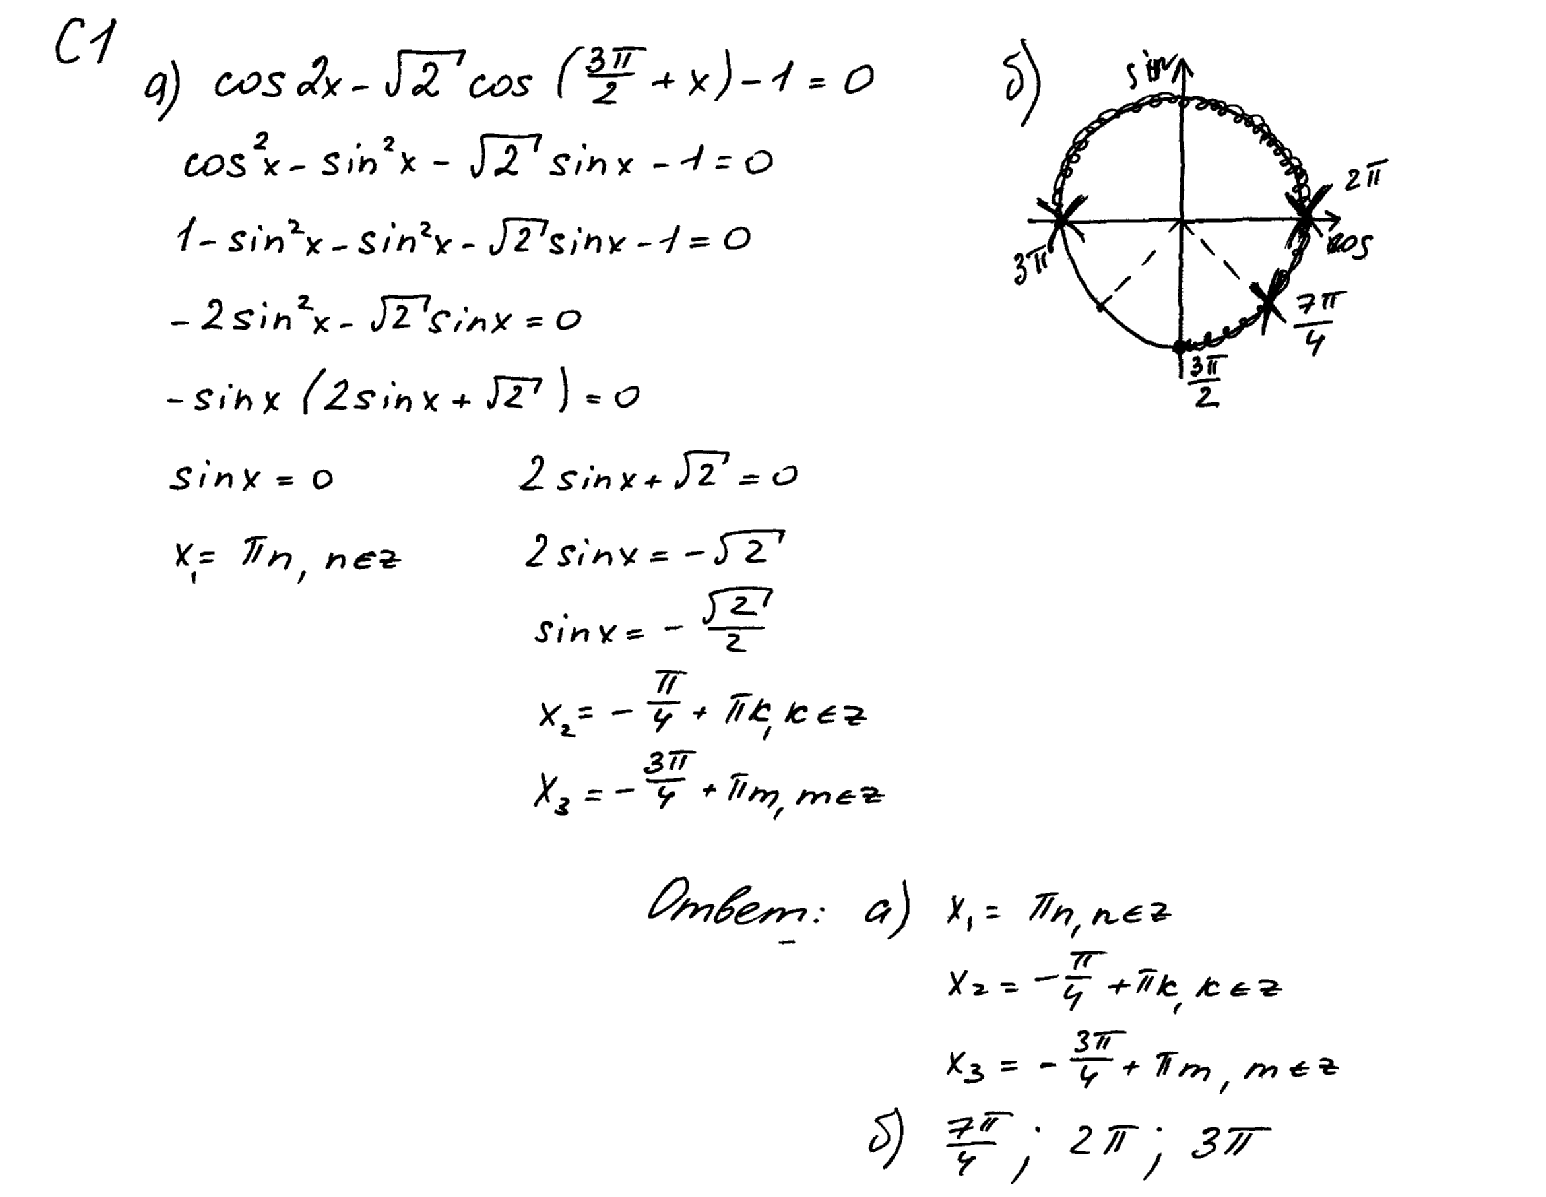 С1
а) cos 2x - √2 cos (3π/2 + x) - 1 = 0
cos²x - sin²x - √2 sinx - 1 = 0
1 - sin²x - sin²x - √2 sinx - 1 = 0
- 2 sin²x - √2 sinx = 0
- sinx (2 sinx + √2) = 0
sinx = 0
x₁ = πn, n∈z
2 sinx + √2 = 0
2 sinx = - √2
sinx = - √2/2
x₂ = - π/4 + πk, k∈z
x₃ = - 3π/4 + πm, m∈z
б)
sin
2π
cos
3π
7π/4
3π/2
Ответ: а) x₁ = πn, n∈z
x₂ = - π/4 + πk, k∈z
x₃ = - 3π/4 + πm, m∈z
б) 7π/4 ; 2π ; 3π